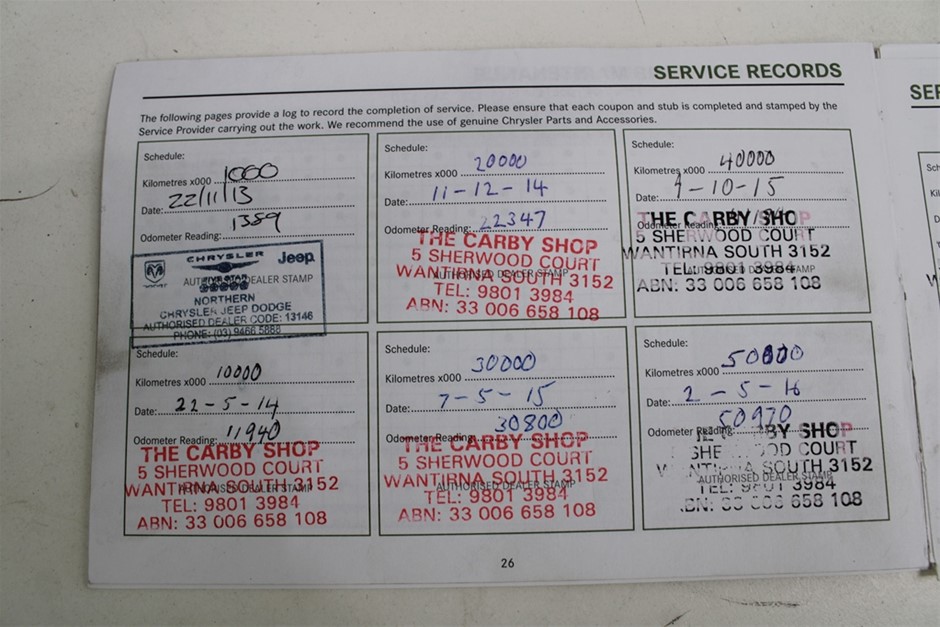 SERVICE RECORDS
The following pages provide a log to record the completion of service. Please ensure that each coupon and stub is completed and stamped by the
Service Provider carrying out the work. We recommend the use of genuine Chrysler Parts and Accessories.
Schedule:
Kilometres x000 1000
Date: 22/11/13
Odometer Reading: 1389
CHRYSLER Jeep
FIVE STAR
AUTHORISED DEALER STAMP
NORTHERN
CHRYSLER JEEP DODGE
AUTHORISED DEALER CODE: 13146
PHONE: (03) 9466 5888
Schedule:
Kilometres x000 20000
Date: 11-12-14
Odometer Reading: 22347
THE CARBY SHOP
5 SHERWOOD COURT
WANTIRNA SOUTH 3152
AUTHORISED DEALER STAMP
TEL: 9801 3984
ABN: 33 006 658 108
Schedule:
Kilometres x000 40000
Date: 9-10-15
Odometer Reading:
THE CARBY SHOP
5 SHERWOOD COURT
WANTIRNA SOUTH 3152
TEL: 9801 3984
AUTHORISED DEALER STAMP
ABN: 33 006 658 108
Schedule:
Kilometres x000 10000
Date: 22-5-14
Odometer Reading: 11940
THE CARBY SHOP
5 SHERWOOD COURT
WANTIRNA SOUTH 3152
AUTHORISED DEALER STAMP
TEL: 9801 3984
ABN: 33 006 658 108
Schedule:
Kilometres x000 30000
Date: 7-5-15
Odometer Reading: 30800
THE CARBY SHOP
5 SHERWOOD COURT
WANTIRNA SOUTH 3152
AUTHORISED DEALER STAMP
TEL: 9801 3984
ABN: 33 006 658 108
Schedule:
Kilometres x000 50000
Date: 2-5-16
Odometer Reading: 50970
BY SHOP
SHE OD COURT
WANTIRNA SOUTH 3152
AUTHORISED DEALER STAMP
TEL: 9801 3984
BN: 33 006 658 108
26
SER